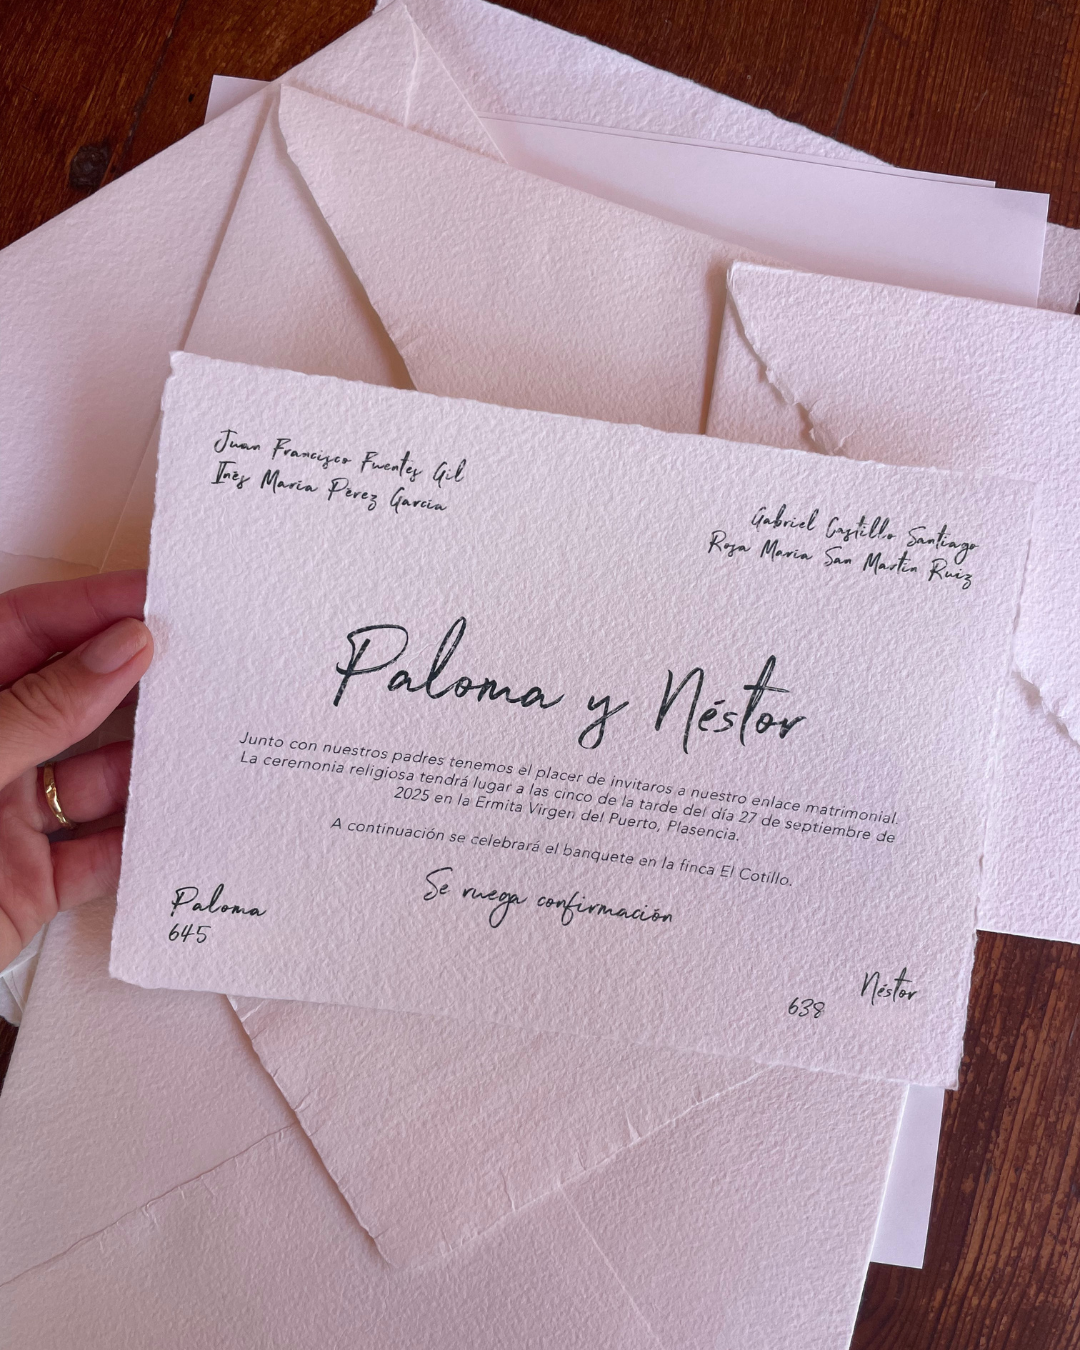 Juan Francisco Fuentes Gil
Inés María Pérez García
Gabriel Castillo Santiago
Rosa María San Martín Ruiz
Paloma y Néstor
Junto con nuestros padres tenemos el placer de invitaros a nuestro enlace matrimonial.
La ceremonia religiosa tendrá lugar a las cinco de la tarde del día 27 de septiembre de
2025 en la Ermita Virgen del Puerto, Plasencia.
A continuación se celebrará el banquete en la finca El Cotillo.
Se ruega confirmación
Paloma
645
Néstor
638